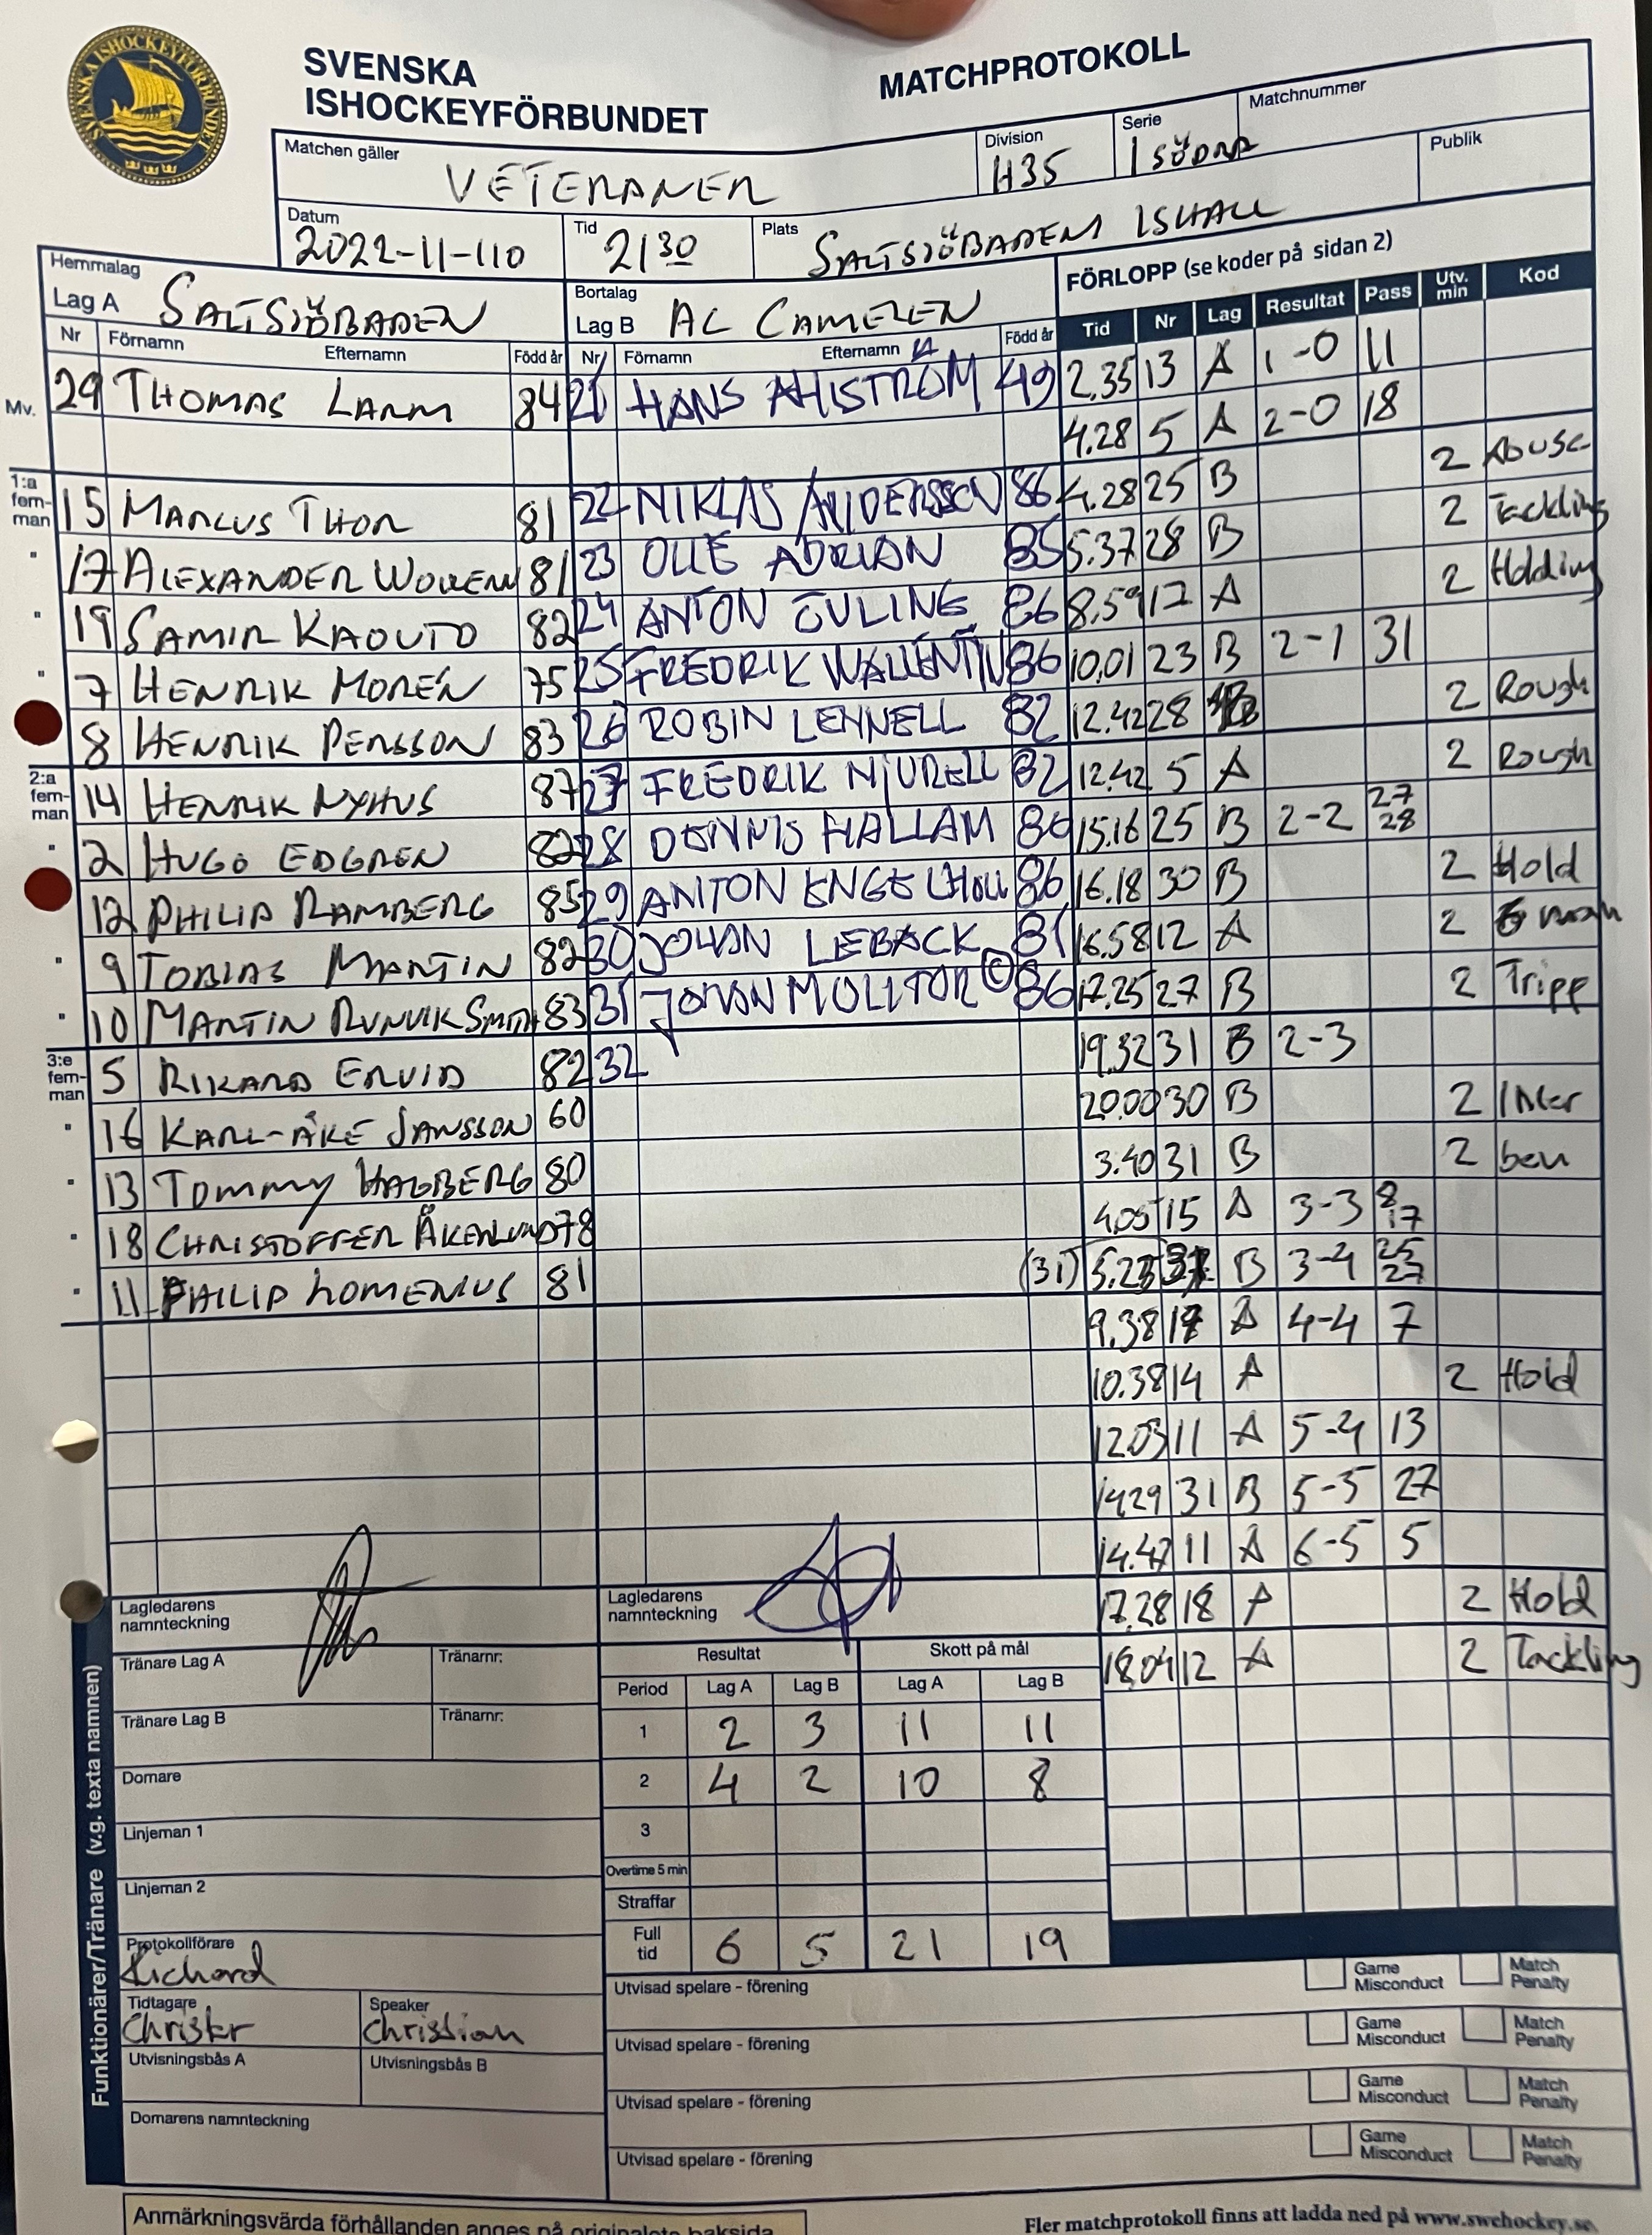 SVENSKA ISHOCKEYFÖRBUNDET
SVENSKA
ISHOCKEYFÖRBUNDET
MATCHPROTOKOLL
Matchen gäller VETERANER
Division H35
Serie 1 SÖDRA
Matchnummer
Publik
Datum 2022-11-110
Tid 21 30
Plats SALTSJÖBADENS ISHALL
Hemmalag
Lag A SALTSJÖBADEN
Bortalag
Lag B AC CAMELEN
FÖRLOPP (se koder på sidan 2)
Nr Förnamn Efternamn Född år
Nr Förnamn Efternamn Född år
Tid Nr Lag Resultat Pass Utv. min Kod
Mv. 29 THOMAS LARM 84
1:a fem-man 15 MARCUS THOR 81
17 ALEXANDER 81
19 SAMIR KAOUTO 82
7 HENRIK MORÉN 75
8 HENRIK PERSSON 83
2:a fem-man 14 HENRIK NYHUS 87
2 HUGO EDGREN 82
12 PHILIP RAMBERG 85
9 TOBIAS MARTIN 82
10 MARTIN RUNVIK SMITH 83
3:e fem-man 5 RIKARD ERVID 82
16 KARL-ÅKE JANSSON 60
13 TOMMY HAGBERG 80
18 CHRISTOFFER ÅKERLUND 78
11 PHILIP LOMENIUS 81
HANS AHLSTRÖM 49
22 NIKLAS ANDERSSON 86
23 OLLE ADRIAN 85
24 ANTON 86
25 FREDRIK WALLENTIN 86
26 ROBIN LENNELL 82
27 FREDRIK NJURELL 82
28 DENNIS HALLAM 86
29 ANTON ENGELHOLL 86
30 JOHAN LEBACK 81
31 JOHAN MOLITOR © 86
32
2.35 13 A 1-0 11
4.28 5 A 2-0 18
4.28 25 B 2 Abuse
5.37 28 B 2 Tackling
8.59 17 A 2 Holding
10.01 23 B 2-1 31
12.42 28 B 2 Rough
12.42 5 A 2 Rough
15.16 25 B 2-2 27 28
16.18 30 B 2 Hold
16.58 12 A 2
17.25 27 B 2 Tripp
19.32 31 B 2-3
20.00 30 B 2 Inter
3.40 31 B 2 ben
4.05 15 A 3-3 8 17
(31) B 3-4 25 27
9.38 A 4-4 7
10.38 14 A 2 Hold
12.03 11 A 5-4 13
14.29 31 B 5-5 27
14.47 11 A 6-5 5
17.28 18 A 2 Hold
18.04 12 A 2 Tackling
Lagledarens namnteckning
Lagledarens namnteckning
Funktionärer/Tränare (v.g. texta namnen)
Tränare Lag A Tränarnr:
Tränare Lag B Tränarnr:
Domare
Linjeman 1
Linjeman 2
Protokollförare
Richard
Tidtagare Speaker
Christer Christian
Utvisningsbås A Utvisningsbås B
Domarens namnteckning
Resultat Skott på mål
Period Lag A Lag B Lag A Lag B
1 2 3 11 11
2 4 2 10 8
3
Overtime 5 min
Straffar
Full tid 6 5 21 19
Utvisad spelare - förening Game Misconduct Match Penalty
Utvisad spelare - förening Game Misconduct Match Penalty
Utvisad spelare - förening Game Misconduct Match Penalty
Utvisad spelare - förening Game Misconduct Match Penalty
Anmärkningsvärda förhållanden anges på originalets baksida
Fler matchprotokoll finns att ladda ned på www.swehockey.se